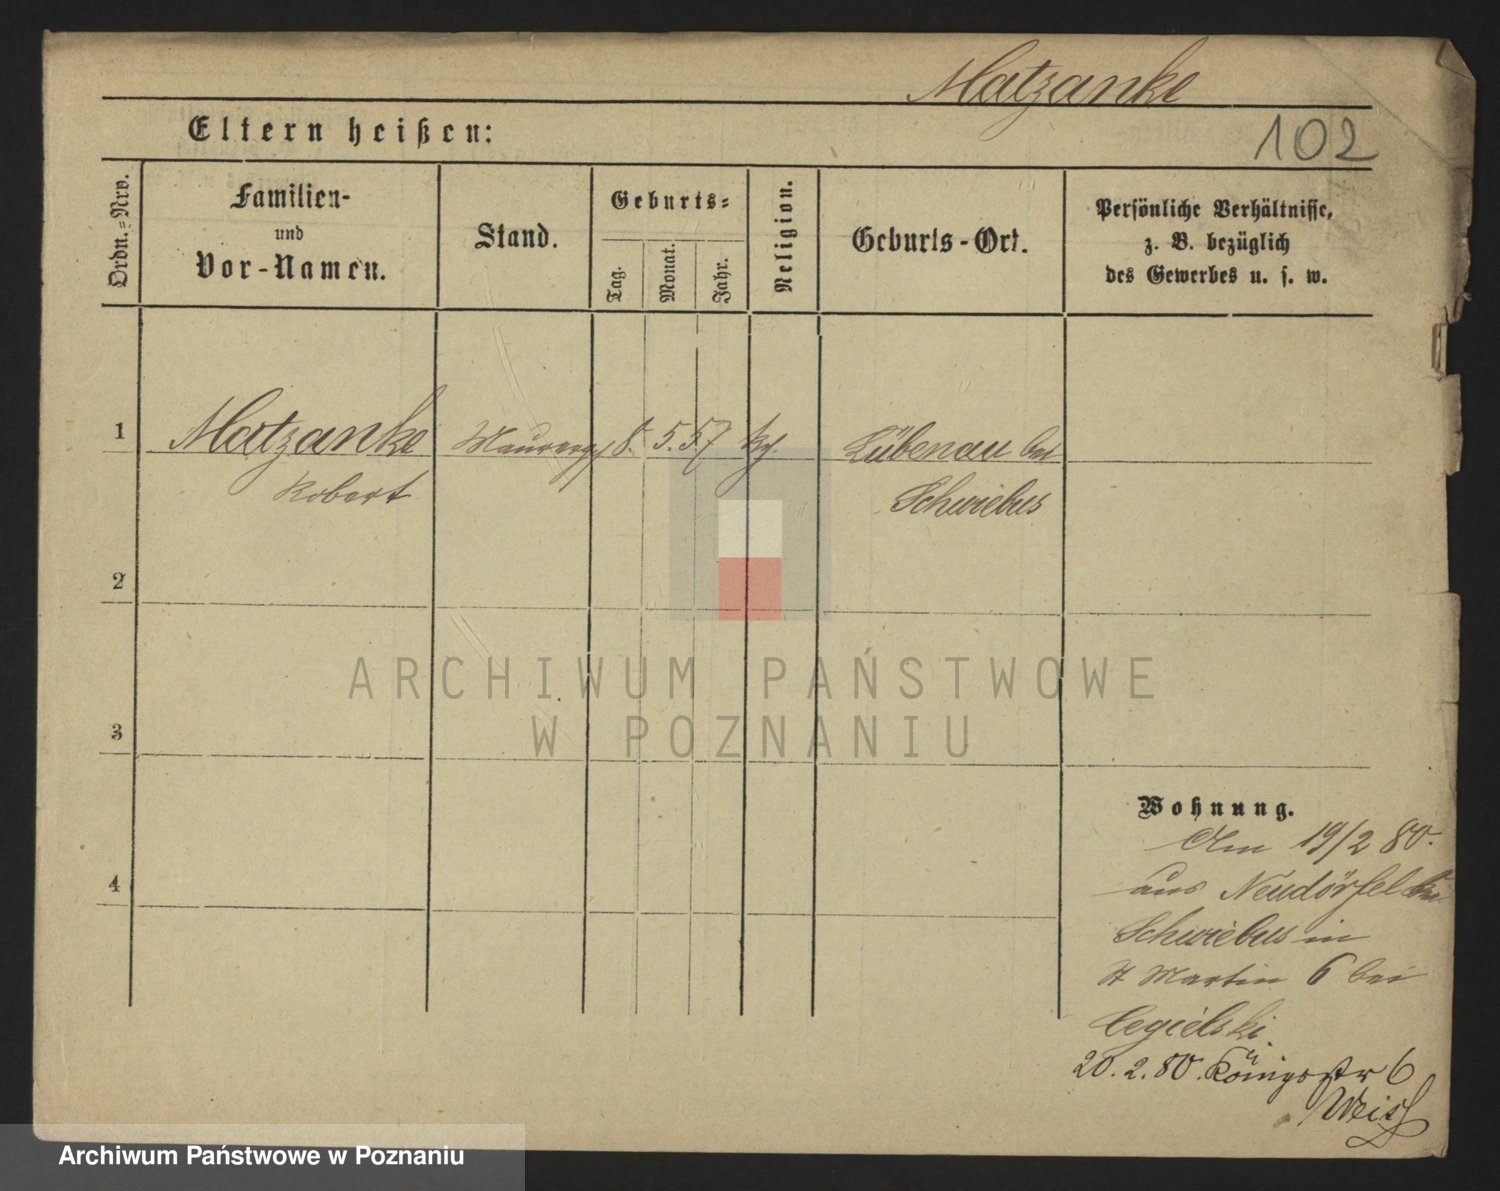 Matzanke
102
Eltern heißen:
Ordn.=Nro.
Familien-
und
Vor-Namen.
Stand.
Geburts=
Tag.
Monat.
Jahr.
Religion.
Geburts-Ort.
Persönliche Verhältnisse,
z. B. bezüglich
des Gewerbes u. s. w.
1 Matzanke 8. 5. 57 Lübenau bei
Robert Schwiebus
2
3
4
Wohnung.
Am 19/2 80.
aus Neudörfel bei
Schwiebus in
St Martin 6 bei
Cegielski.
20. 2. 80. Königsstr 6
Weiss
ARCHIWUM PAŃSTWOWE
W POZNANIU
Archiwum Państwowe w Poznaniu